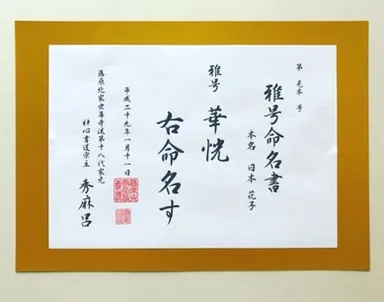 第 見本 号
雅号命名書
本名 日本 花子
雅号 華恍
右命名す
平成二十九年一月十一日
藤原北家世尊寺流第十八代家元
秀麻呂